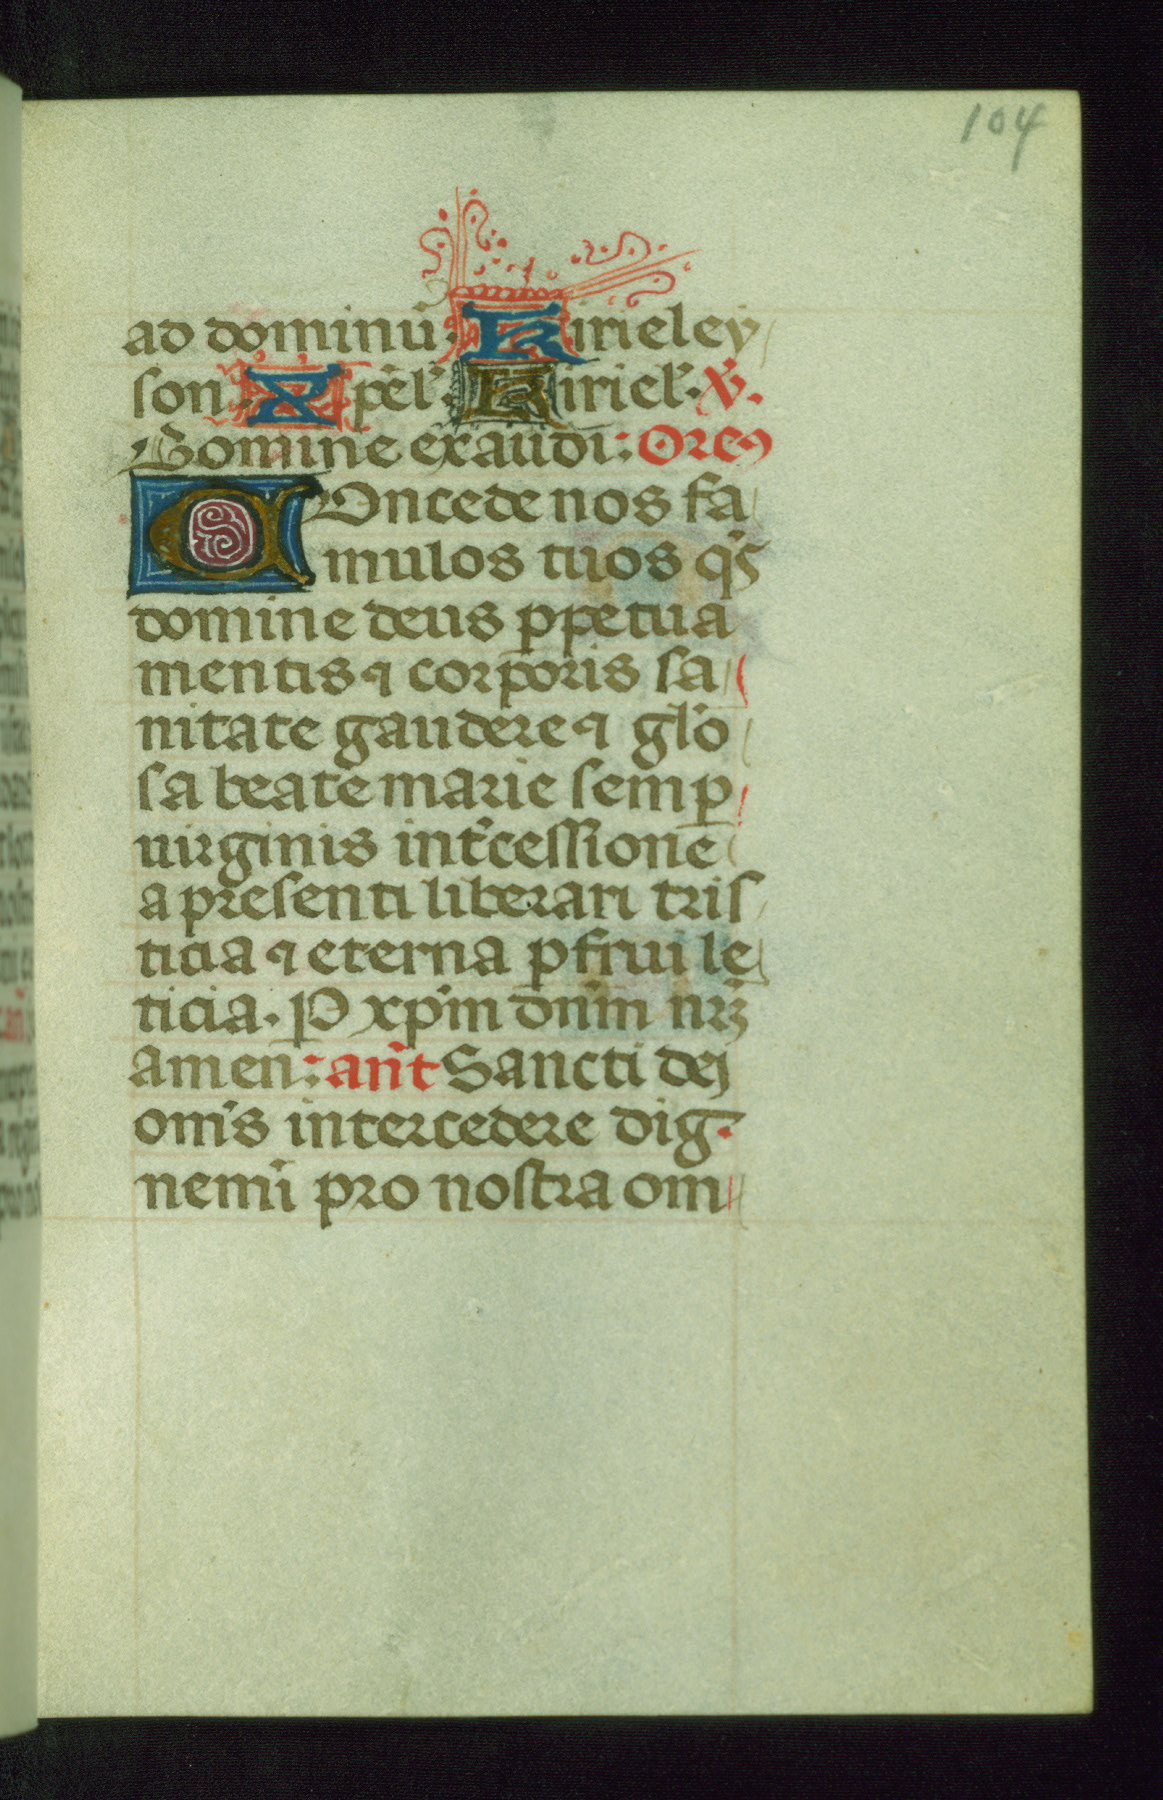 104
ad dominū. Kirieley
son. Xpēl'. Kiriel'. V̓.
Domine exaudi: Oremꝰ
Concede nos fa
mulos tuos q̄s
domine deus ꝑpetua
mentis ⁊ corporis sa
nitate gaudere ⁊ gl'o
sa beate marie semꝑ
uirginis int̓cessione
a presenti liberari tris
ticia ⁊ eterna ꝑfrui le
ticia. P xp̄m dn̄m nr̄ꝫ
amen: an̄t Sancti dej
om̄s intercedere dig
nemī pro nostra om